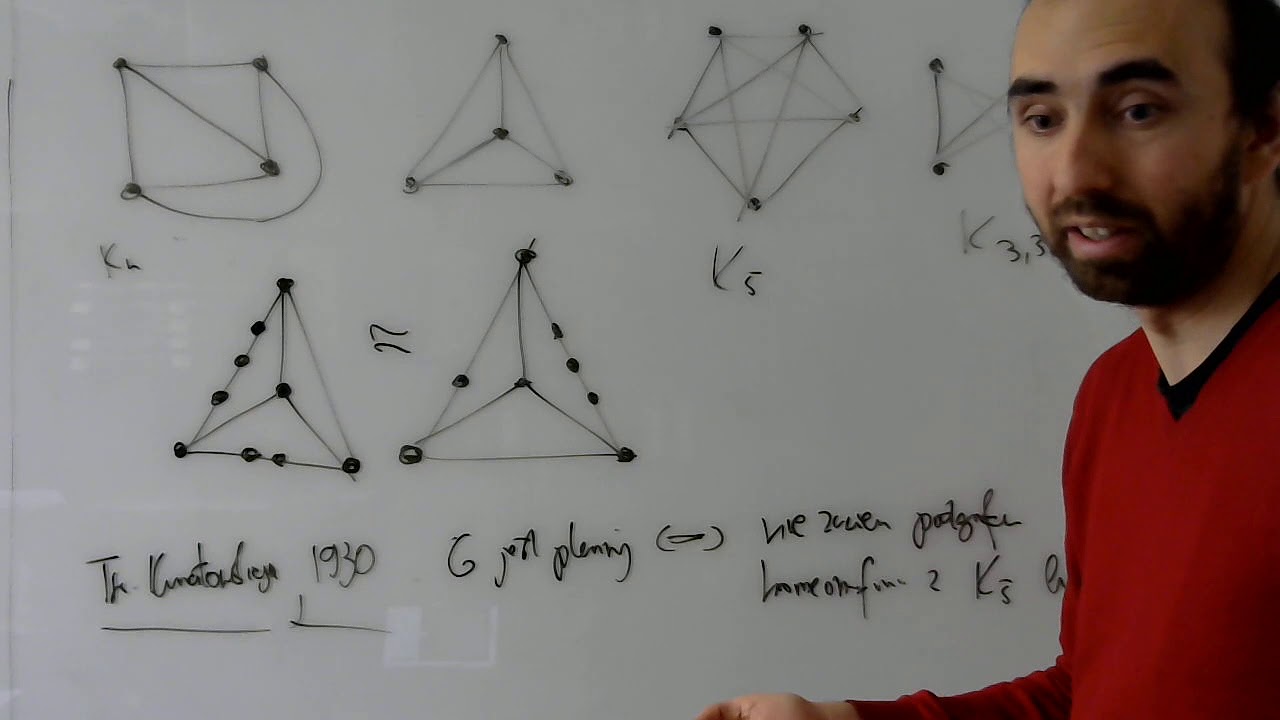 K₄
K₅
K₃,₃
≅
Tw. Kuratowskiego 1930 G jest planarny ⟺ nie zawiera podgrafu
homeomorficznego z K₅